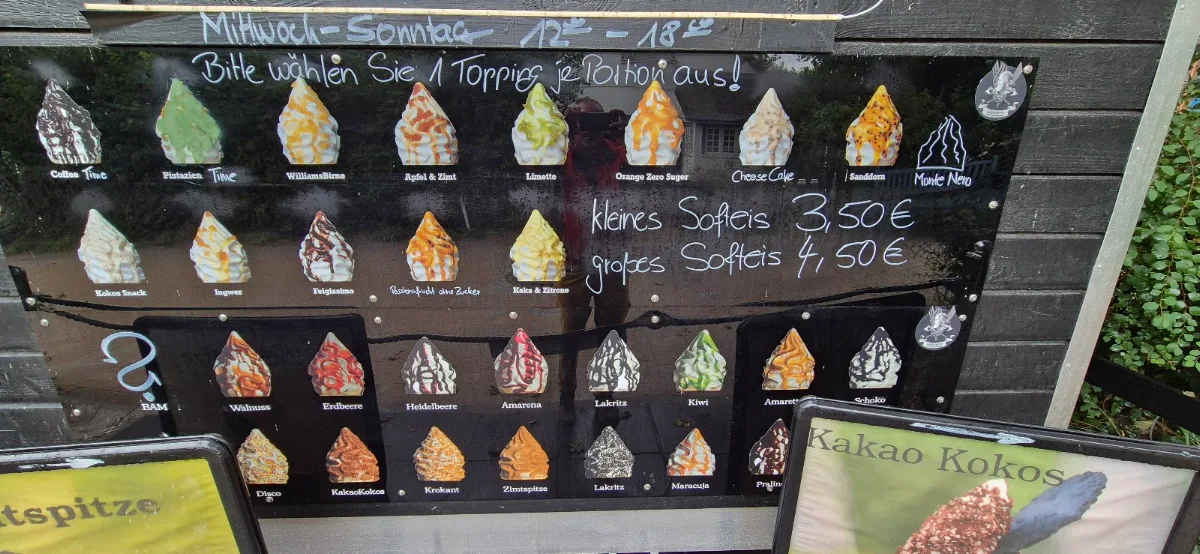 Mittwoch - Sonntag 12⁰⁰ - 18⁰⁰
Bitte wählen Sie 1 Topping je Portion aus!
Coffee Time
Pistazien Time
WilliamsBirne
Apfel & Zimt
Limette
Orange Zero Suger
Cheese Cake
Sanddorn
Monte Nero
kleines Softeis 3,50 €
großes Softeis 4,50 €
Kokos Snack
Ingwer
Feigissimo
Passionsfrucht ohne Zucker
Keks & Zitrone
?
BAM
Walnuss
Erdbeere
Heidelbeere
Amarena
Lakritz
Kiwi
Amarett
Schoko
Disco
KakaoKokos
Krokant
Zimtspitze
Lakritz
Maracuja
Praline
ntspitze
Kakao Kokos